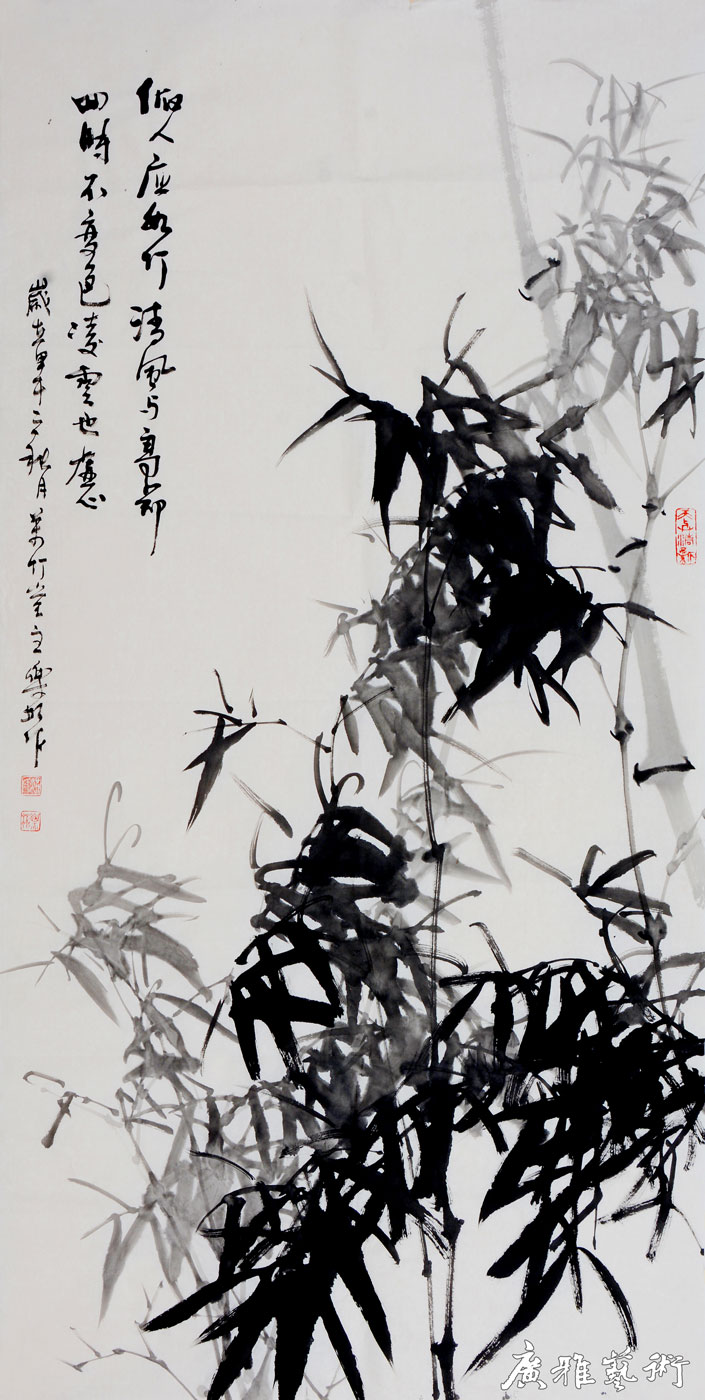 做人应如竹清风与高节
四时不变色凌云也虚心
岁在甲午之秋月万竹堂主乐松作
廣雅藝術